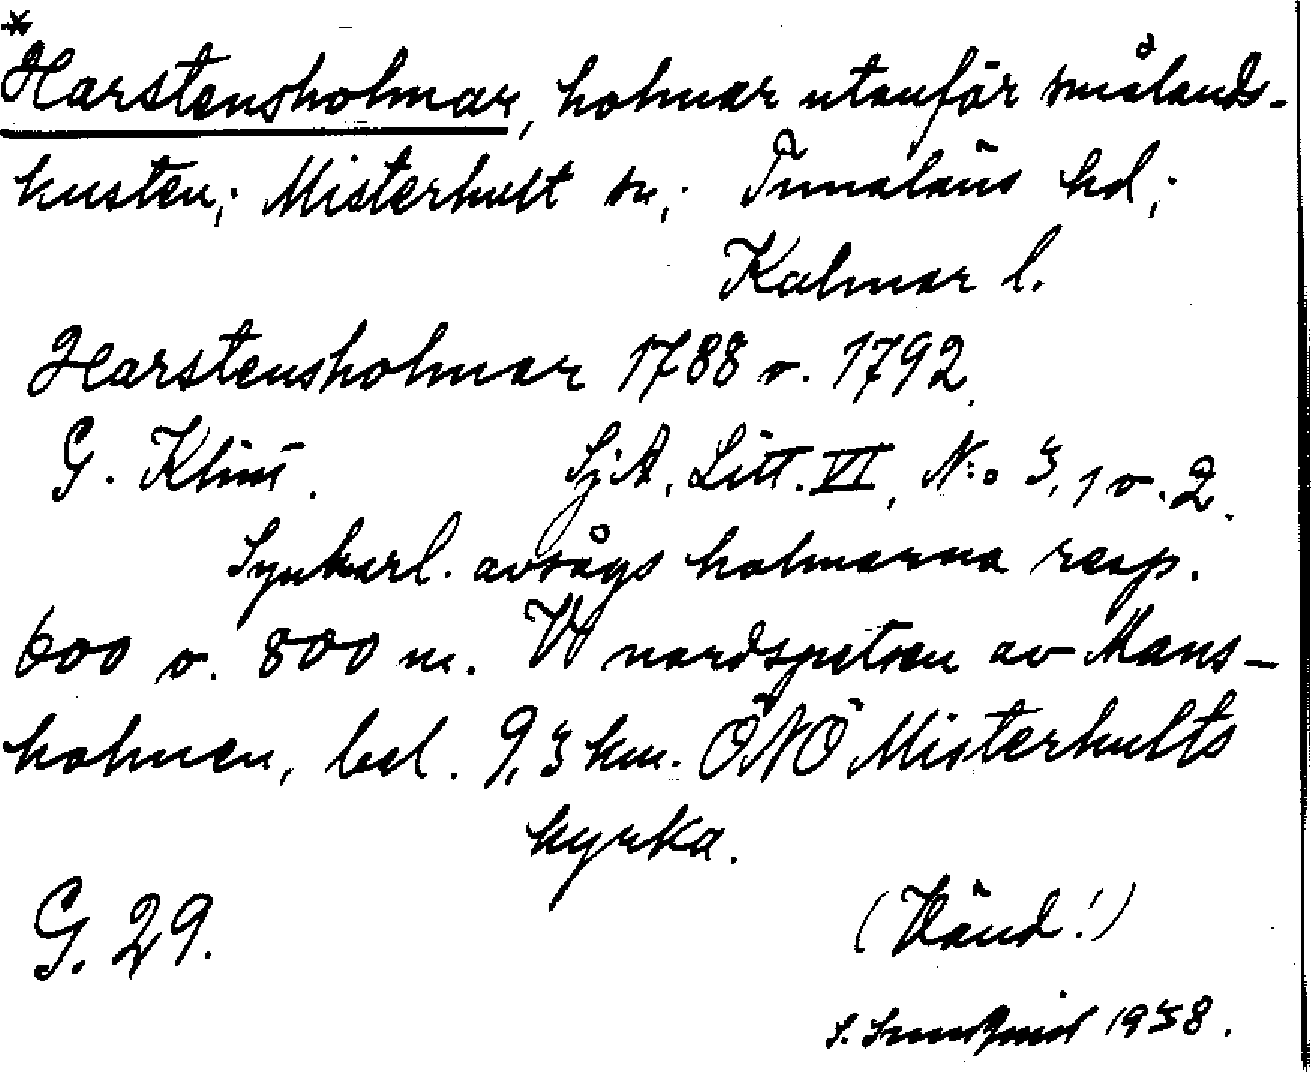 *
Harstensholmar, holmar utanför smålands-
kusten; Misterhult sn; Tunaläns hd;
Kalmar l.
Harstensholmar 1788 o. 1792.
G. Klint. SjA, Litt. VI, N:o 3, 1 o. 2.
Synbarl. avsågs holmarna resp.
600 o. 800 m. V nordspetsen av Mans-
holmen, bel. 9,3 km. ÖNÖ Misterhults
kyrka.
G. 29. (Vänd!)
S. 1938.